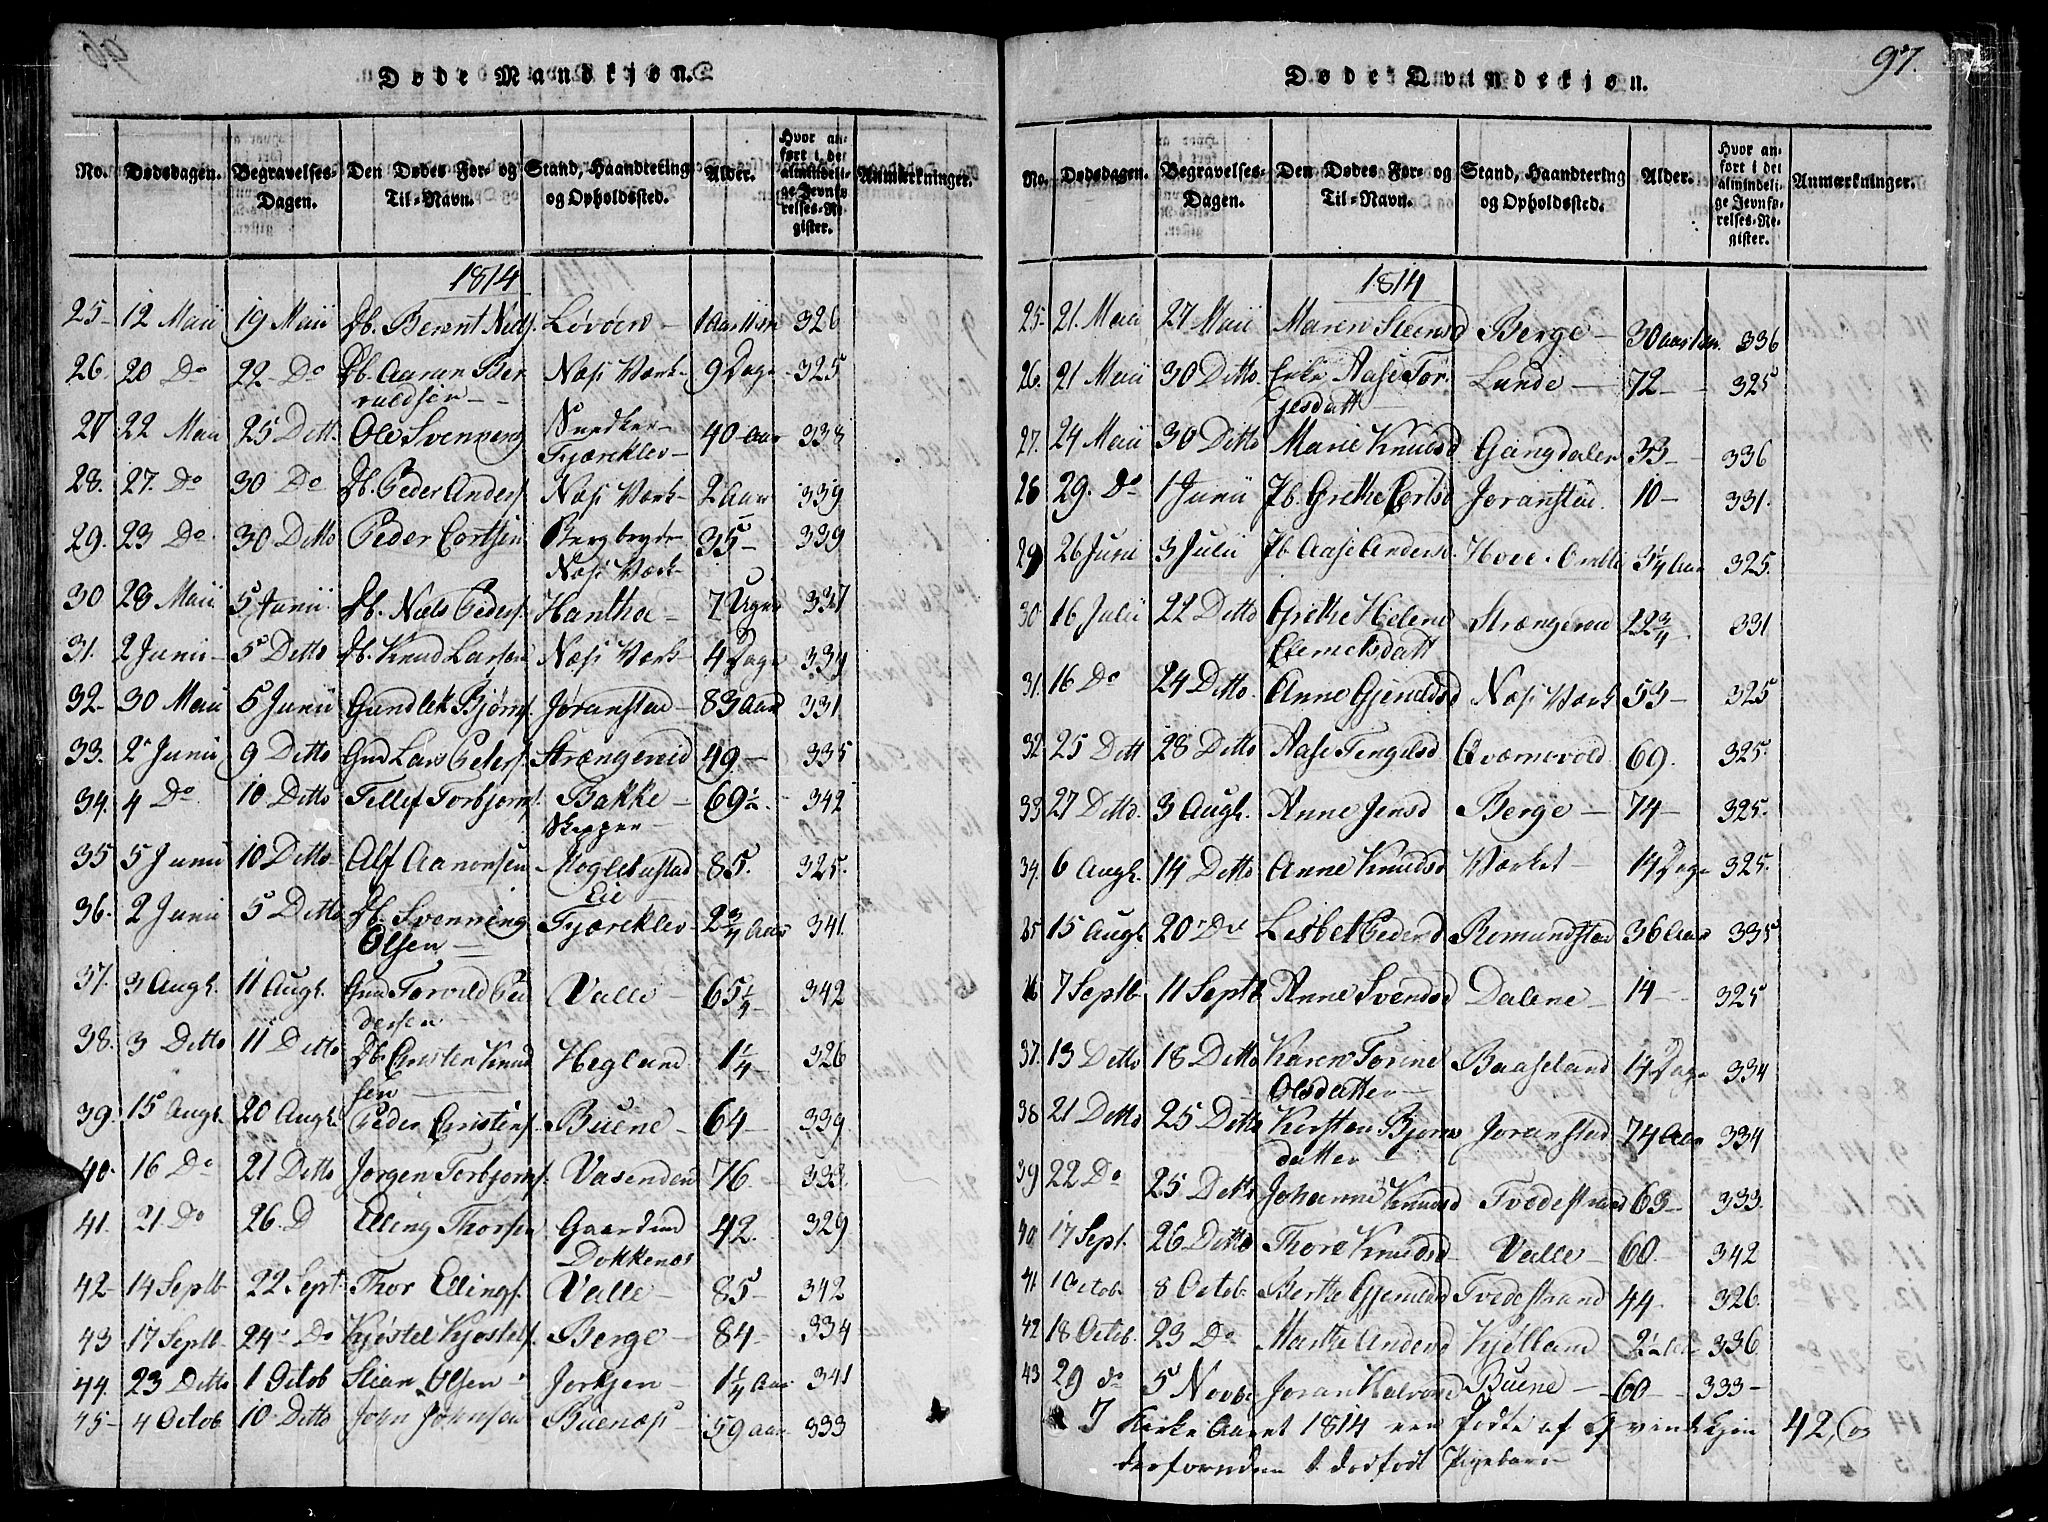 Døde Mandkjøn.
No. Dødsdagen. Begravelses-Dagen. Den Dødes For- og Til-Navn. Stand, Haandtering og Opholdssted. Alder. Hvor anført i det almindelige Jevnførelses-Register. Anmærkninger.
1814
25- 12 Maii 19 Maii Db. Berent Niels. Løvøen- 1 Aar 326
26. 20 Do 22 Do Db. Aaran Ber Næss Værk- 9 Dage 325
27 22 Maii 25 Ditto Ole Svenning Snedker- 40 Aar 338
Fjæreklev-
28. 27. Do 30 Do Db. Peder Anders. Næss Værk- 2 Aar 339
29. 23 Do 30 Ditto Peder Cortsen 35- 339
Næss Værk-
30 28 Maii 5 Junii Db. Niels Peders. Hantho- 7 Uger 337
31. 2 Junii- 5 Ditto Db. Knud Larsen Næss Værk- 4 Dage 334
32- 30 Maii 5 Junii Gundlek Bjøns. Jøranstad- 83 Aar 331
33. 2 Junii 9 Ditto Gmd Lars Peters. Strængereid 49.- 335
34. 4 Do 10 Ditto Tellef Torbjørns. Bakke- 69½ 342
Skipper-
35 5 Junii 10 Ditto Alf Aaronsen Moglestustad 85. 325.
Eie
36. 2 Junii 5 Ditto Db. Svenning Fjæreklev- 2¾ Aar 341.
Olsen-
37. 3 Augt. 11 Augt. Gmd Torvild Pe Valle- 65¼ 342
dersen
38. 3 Ditto 11 Ditto Db. Cristen Knud Heglund 1¼ 326
sen
39. 15 Augt. 20 Augt. Peder Cristens. Buene- 64- 339
40- 16 Do 21 Ditto Jørgen Torbjørns. Vasenden 76- 333.
41. 21 Do 26. D Elling Thorsen Gaardmd 42. 329
Dokkenes
42- 14 Septb 22 Sept Thor Ellings. Valle- 85- 342
43 17 Septb 24 Do Kjøstel Kjøstels. Berge- 84- 334
44. 23 Ditto 1 Octob Stian Olsen Jorkjen- 1¼ Aar 341
45- 4 Octob 10 Ditto John Johnsen Buenæs 59 aar 333
97.
Døde Qvindekjøn.
No. Dødsdagen. Begravelses-Dagen. Den Dødes For- og Til-Navn. Stand, Haandtering og Opholdssted. Alder. Hvor anført i det almindelige Jevnførelses-Register. Anmærkninger.
1814
25- 21. Maii 27 Maii Maren Steensd Berge- 30 336
26. 21 Maii 30 Ditto Enke Aase Tor Lunde- 72- 325
jesdatt-
27. 24 Maii 30 Ditto Marie Knudsd Gangdalen 33- 336
28 29. Do 1 Junii Pb. Grethe Cortsd Joranstad. 10- 331.
29 26 Junii 3 Julii Pb Aase Anders. Hove. Omlii 3¼ Aar 325.
30 16 Julii 22 Ditto Grethe Helene Strængereid 22¾ 331
Clemetsdatt
31. 16 Do 24 Ditto. Anne Gjeruldsd Næss Værk 53- 325
32. 25 Ditt 28 Ditto Aase Tengelsd Qværnevold 69. 325.
33 27 Ditto. 3 Augt. Anne Jensd Berge- 74- 325.
34. 6 Augt. 14 Ditto Anne Knudsd Værket- 14 Dage 325.
35 15 Augt. 20 Do Lisbet Pedersd Romundstad 36 Aar 335
36 7 Septb 11 Septb Anne Svendsd Dalene- 14- 325
37. 13 Ditto 18 Ditto Karen Torine Baaseland 14 Dage 334
Olsdatter-
38 21 Ditto 25 Ditto Kirsten Bjørns Joranstad 74 Aar 334
datter
39 22 Do 25 Ditto Johanne Knudsd Tvedestrand 63- 333.
40 17 Sept. 26 Ditto Thore Knudsd Valle- 60. 342
41 1 Octob. 8 Octob. Berthe Gjeruldsd Tvedestrand 44- 326.
42 18 Octob. 23 Do Marthe Andersd Kjølland 2½ 336
43 29 do 5 Novbr Joran Halvorsd Buene- -60- 333-
I Kirke Aaret 1814 ere fødte af Qvindekjøn 42, og
desforuden 1 dødfødt Pigebarn-